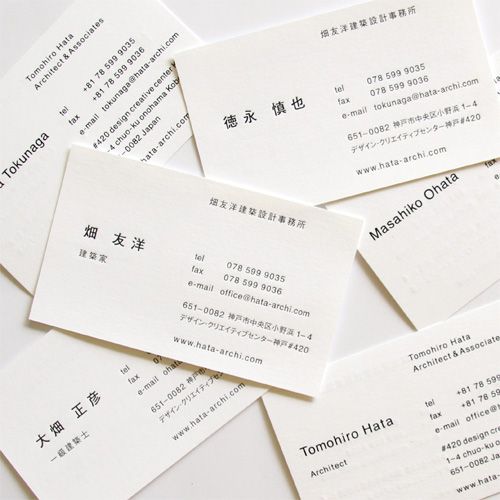 Tomohiro Hata
Architect & Associates
+81 78 599 9035
+81 78 599 9036
tokunaga@hata-archi.com
#420 design creative center
1-4 chuo-ku onohama Kob
651-0082 Japan
Tokunaga
畑友洋建築設計事務所
徳永 慎也
tel 078 599 9035
fax 078 599 9036
e-mail tokunaga@hata-archi.com
651-0082 神戸市中央区小野浜 1-4
デザイン・クリエイティブセンター神戸#420
www.hata-archi.com
Masahiko Ohata
畑友洋建築設計事務所
畑 友洋
建築家
tel 078 599 9035
fax 078 599 9036
e-mail office@hata-archi.com
651-0082 神戸市中央区小野浜 1-4
デザイン・クリエイティブセンター神戸#420
www.hata-archi.com
大畑 正彦
一級建築士
tel
fax
e-mail
651-0082 神戸市
デザイン・クリエイティブセン
www.hata-archi.
Tomohiro Hata
Architect & Associates
Tomohiro Hata
Architect
tel +81 78
fax +81 78
e-mail office@
#420 design
1-4 chuo-ku
651-0082 Ja
www.hata